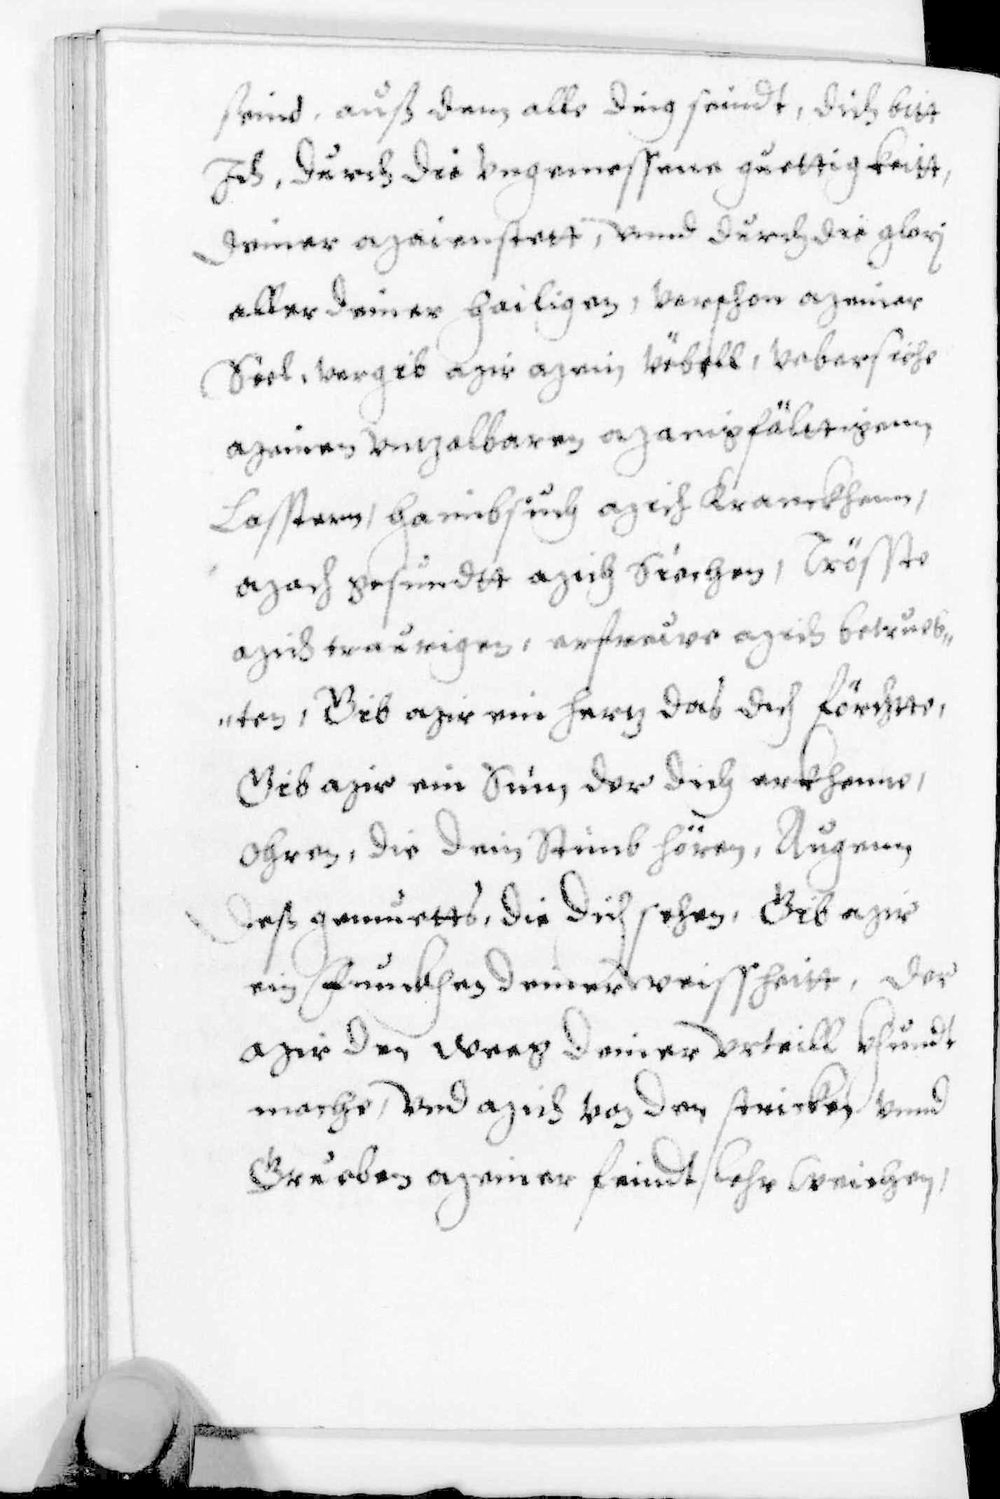 seind, auß dem alle ding seindt, dich bitt
Ich, durch die Vngemessene guettigkeitt,
deiner Maienstett, vnnd durch die glorj
aller deiner Hailigen, verschon meiner
Seel, vergib mir mein Vöbell, vebersiehe
meinen Vnzalbaren Manigfälltigenn
Lasstern, Haimbsuch mich Kranckhenn,
Mach gesundtt mich Siechen, Trösste
mich traurigen, erfreuwe mich betrueb„
„ten, Gib mir ein hertz das dich förchtte,
Gib mir ein Sünn der dich erkhenne,
Ohren, die dein Stimb hören, Augenn
deß gemuetts, die dich sehen, Gib mir
ein Funckhen deiner weissheitt, der
mir den weeg deiner vrteill khundt
mache, vnd mich von den stricken vnnd
Grueben meiner feindt lehr weichen,